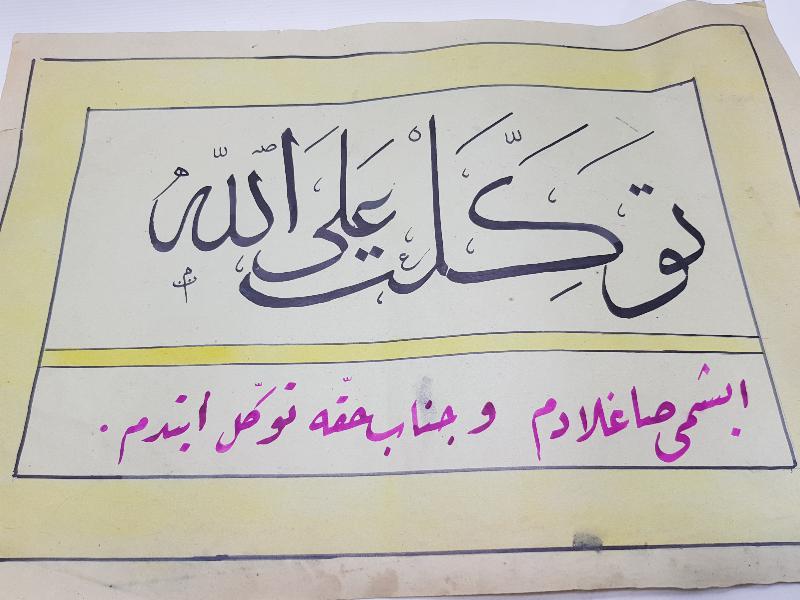 توكّلت على اللّه
ایشمی صاغلادم و جناب حقّه توكّل ایتدم.